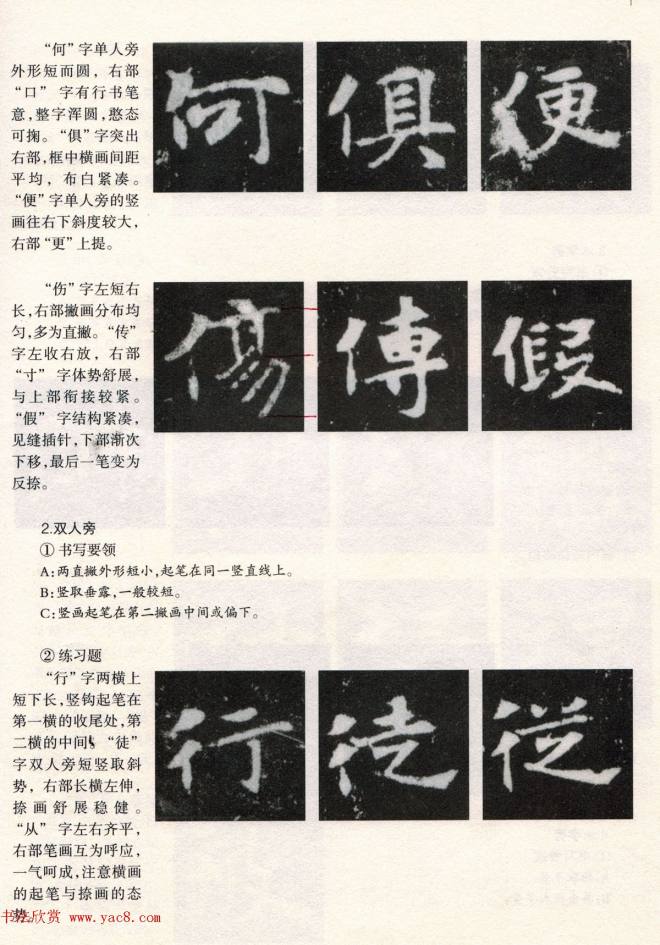 “何”字单人旁
外形短而圆，右部
“口”字有行书笔
意，整字浑圆，憨态
可掬。“俱”字突出
右部，框中横画间距
平均，布白紧凑。
“便”字单人旁的竖
画往右下斜度较大，
右部“更”上提。
何 俱 便
“伤”字左短右
长，右部撇画分布均
匀，多为直撇。“传”
字左收右放，右部
“寸”字体势舒展，
与上部衔接较紧。
“假”字结构紧凑，
见缝插针，下部渐次
下移，最后一笔变为
反捺。
傷 傳 假
2.双人旁
①书写要领
A：两直撇外形短小，起笔在同一竖直线上。
B：竖取垂露，一般较短。
C：竖画起笔在第二撇画中间或偏下。
②练习题
“行”字两横上
短下长，竖钩起笔在
第一横的收尾处，第
二横的中间。“徒”
字双人旁短竖取斜
势，右部长横左伸，
捺画舒展稳健。
“从”字左右齐平，
右部笔画互为呼应，
一气呵成，注意横画
的起笔与捺画的态
势。
行 徒 從
书法欣赏 www.yac8.com